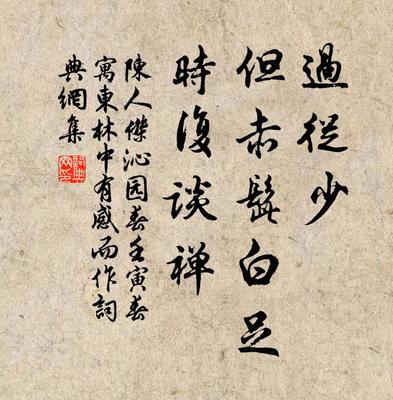 過從少
但赤髭白足
時復談禅
陳人傑沁园春壬寅春
寓東林中有感而作詞
典網集
詞典網印